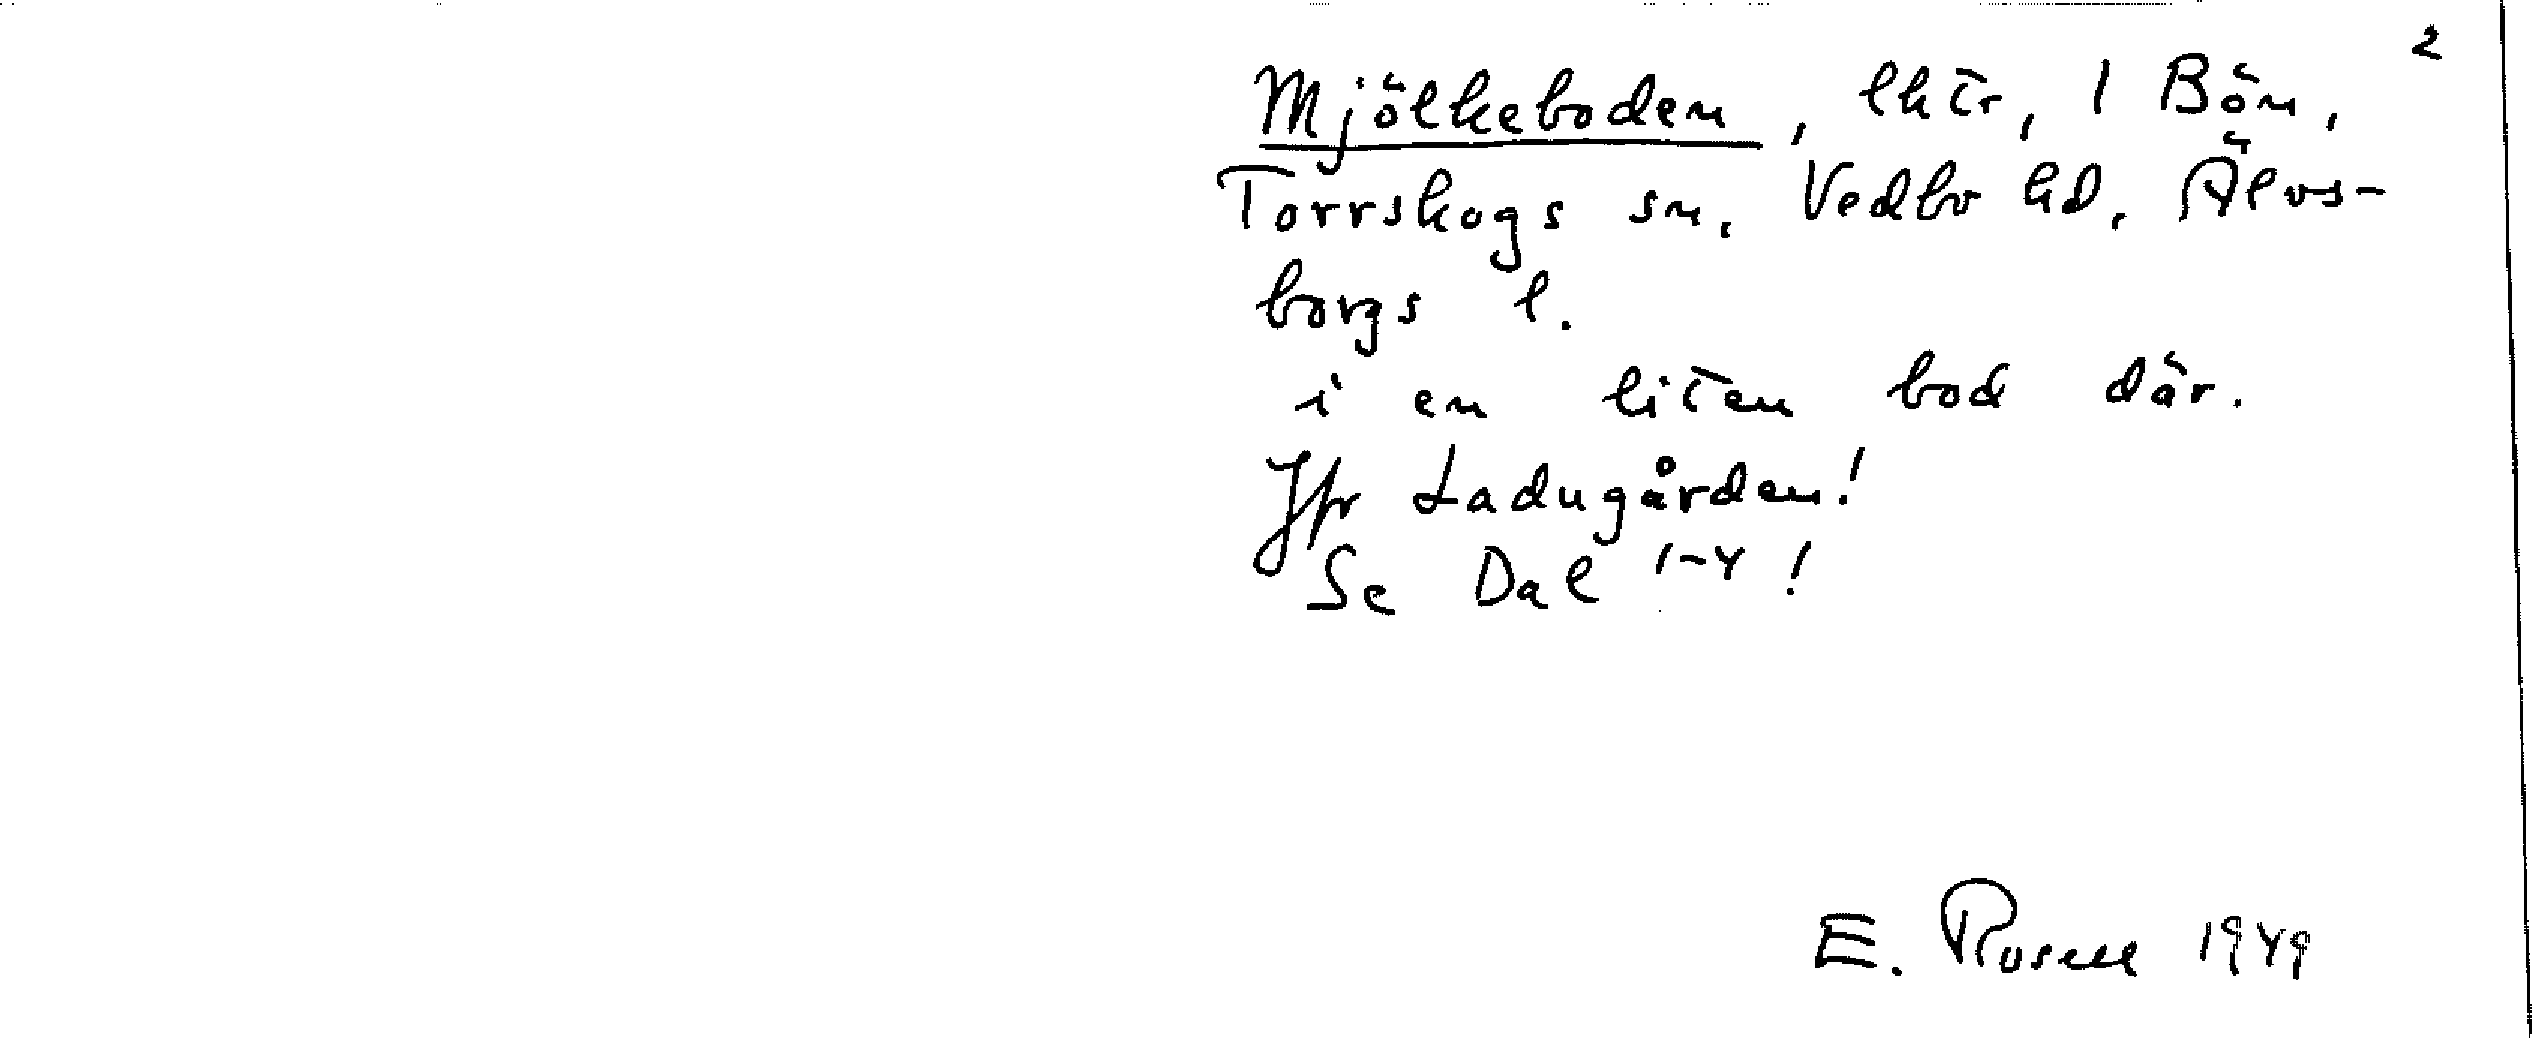 2
Mjölkeboden, lägr, 1 Bön,
Torrskogs sn. Vedbo hd. Älvs-
borgs l.
i en liten bod där.
Jfr Ladugården!
Se Dal 1-4!
E. Rosell 1949